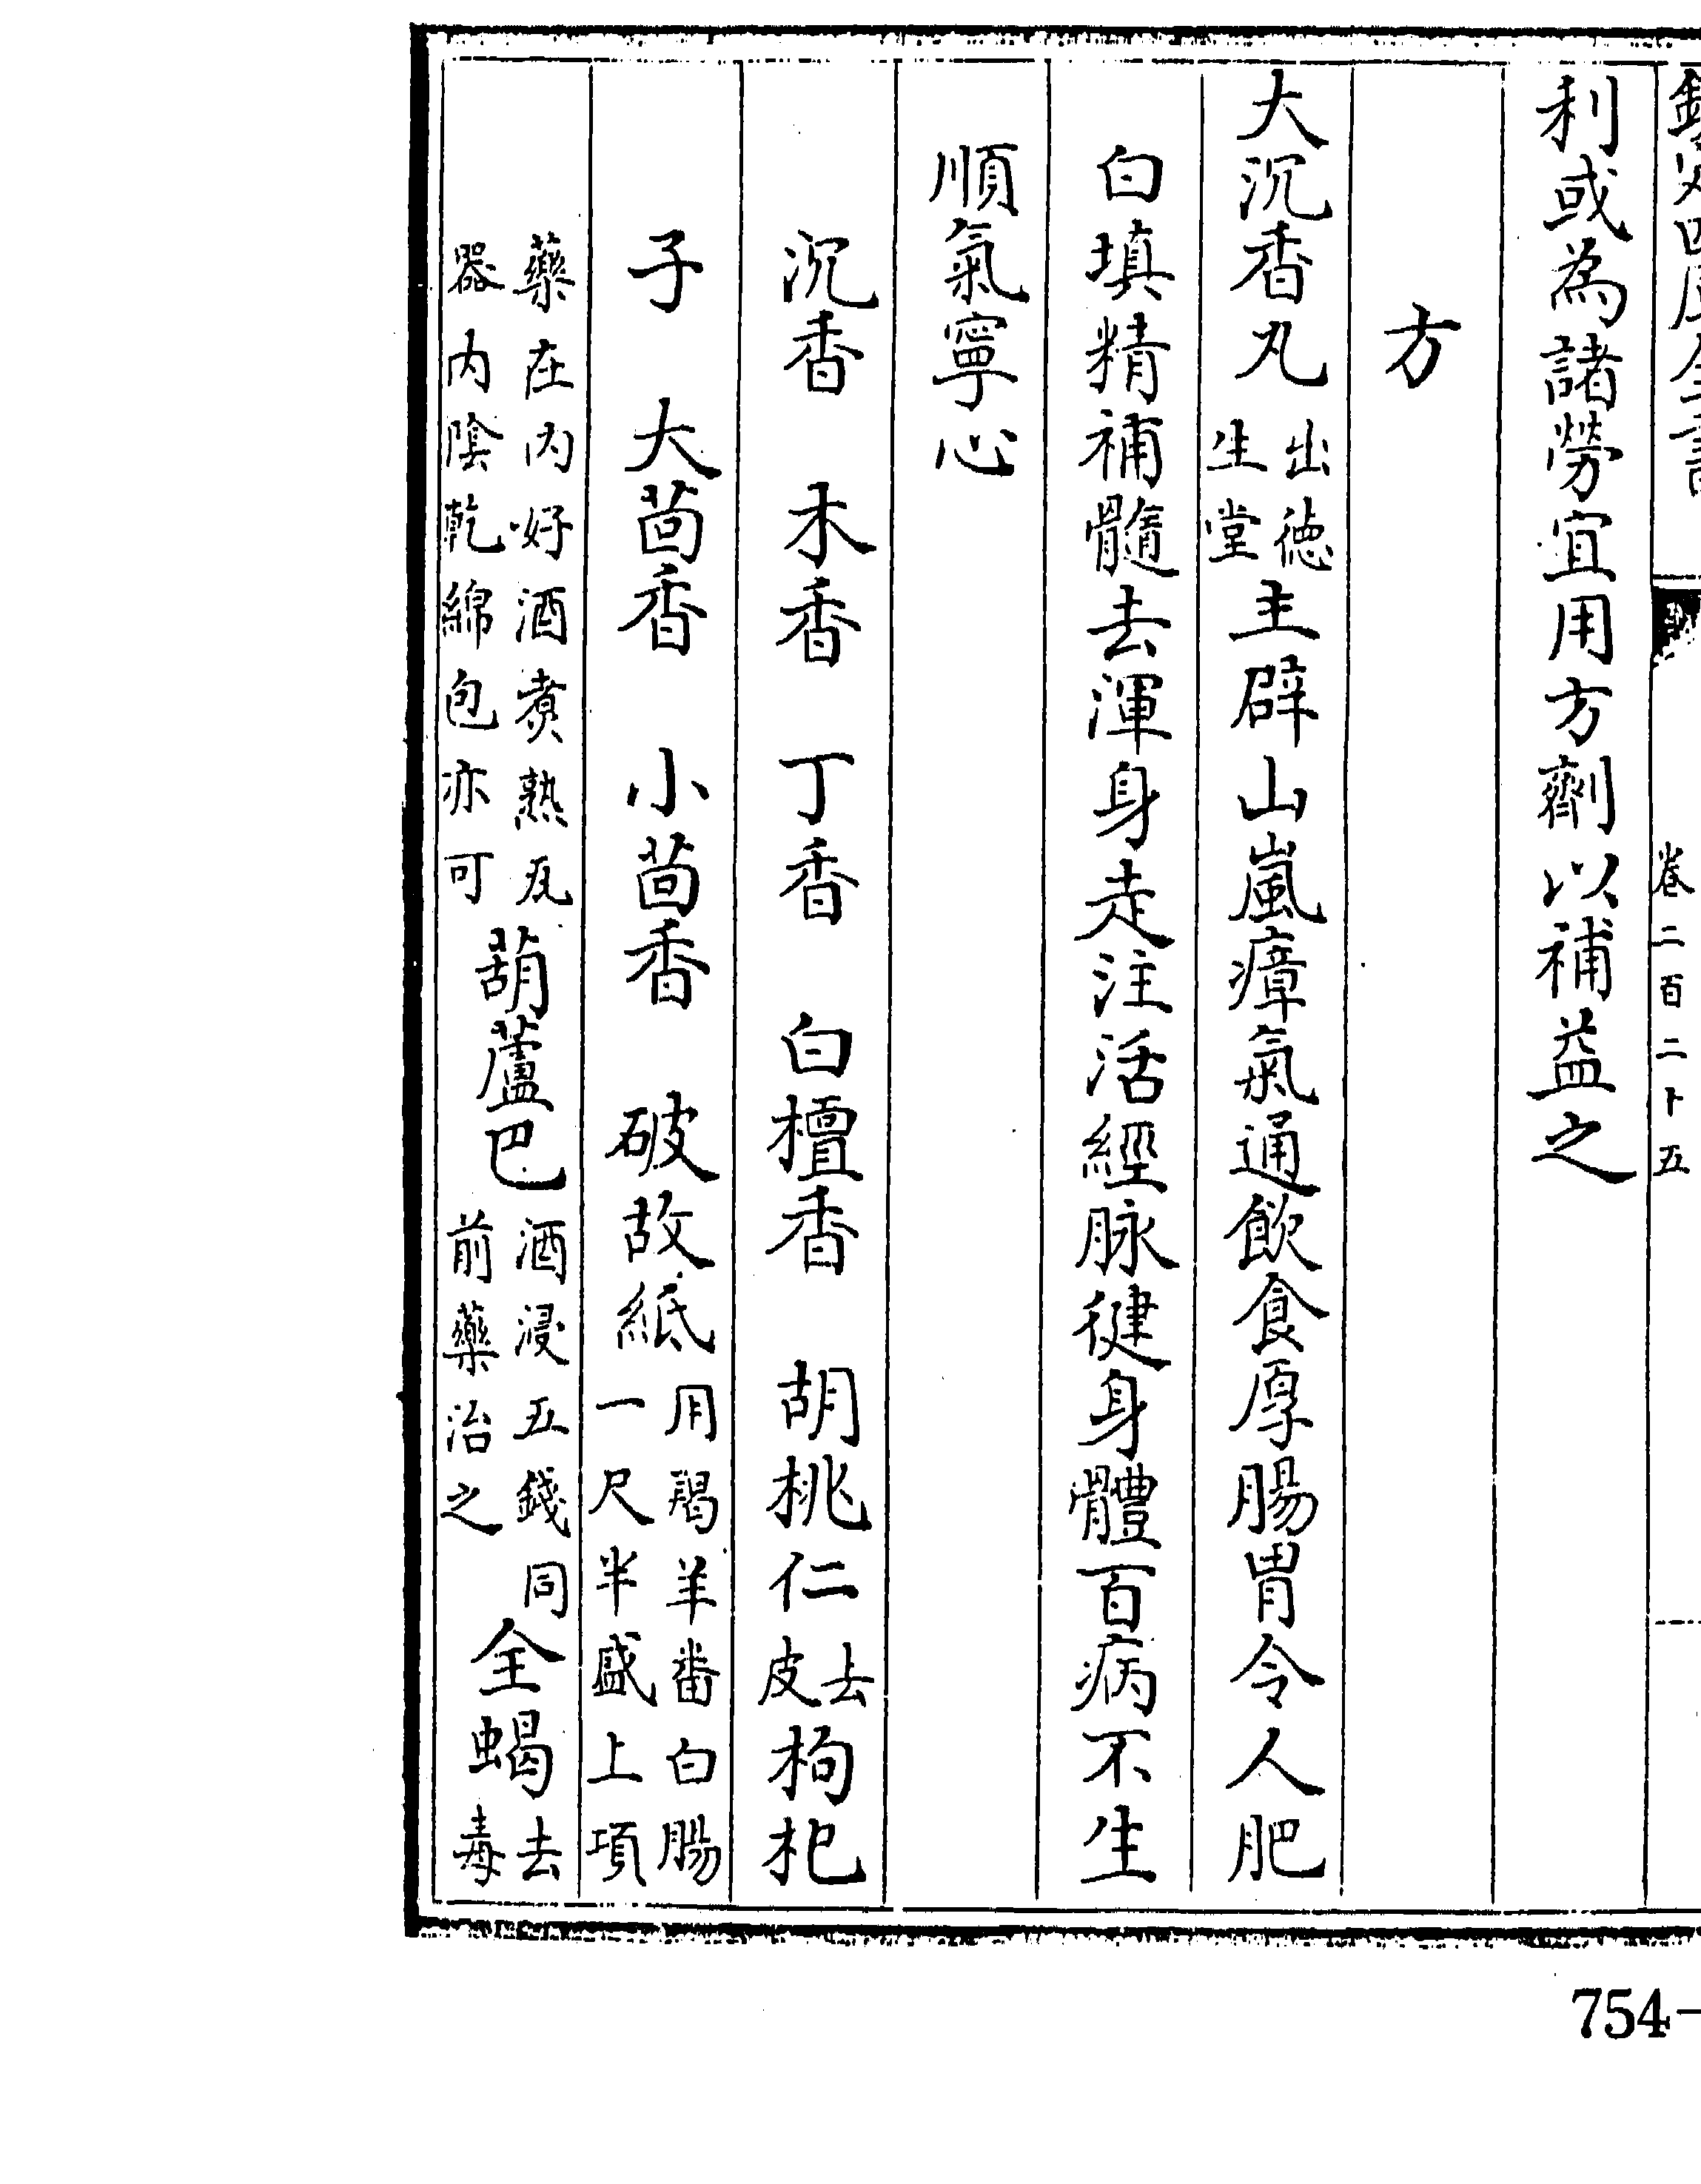 卷二百二十五
利或為諸勞宜用方劑以補益之
方
大沉香丸出德生堂主辟山嵐瘴氣通飲食厚腸胃令人肥
白填精補髓去渾身走注活經脉健身體百病不生
順氣寧心
沉香 木香 丁香 白檀香 胡桃仁去皮枸杞
子 大茴香 小茴香 破故紙用羯羊番白腸一尺半盛上項
藥在内好酒煑熟瓦器内陰乾綿包亦可葫蘆巴酒浸五錢同前藥治之全蝎去毒
754-